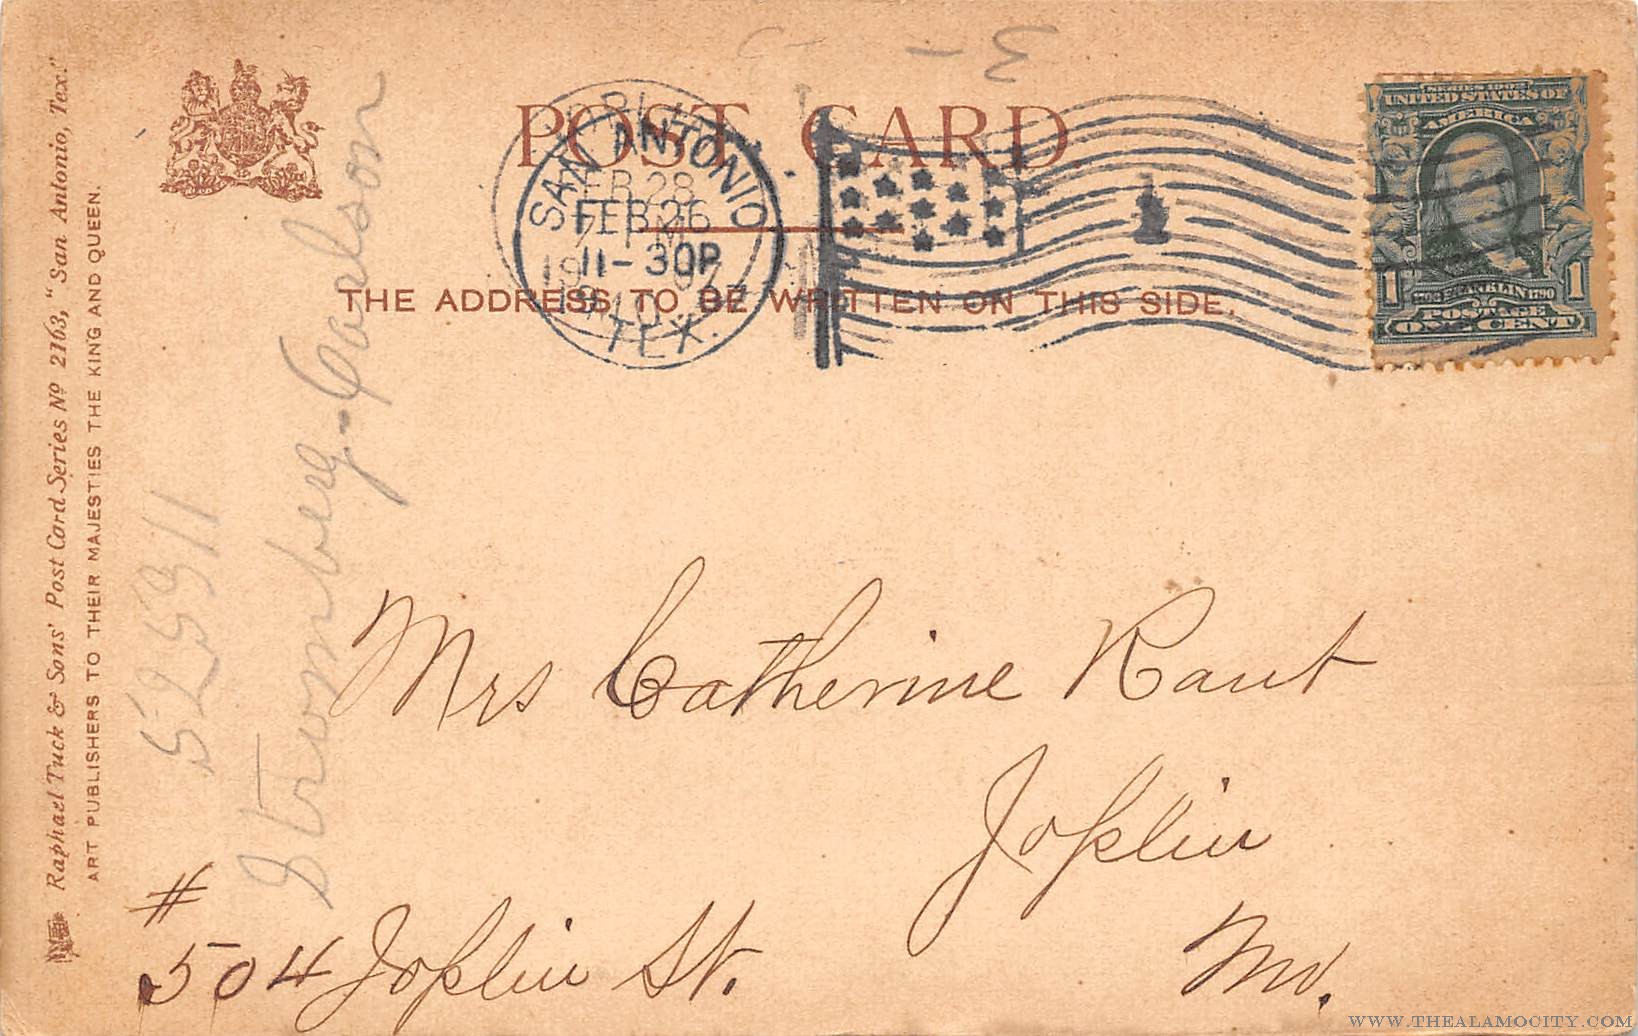 POST CARD
THE ADDRESS TO BE WRITTEN ON THIS SIDE.
SAN ANTONIO
FEB 28
FEB 26
11-30P
19 07
TEX.
1
SERIES 1902
UNITED STATES OF
AMERICA
1 FRANKLIN 1790 1
POSTAGE
ONE CENT
Raphael Tuck & Sons' Post Card Series Nº 2163, "San Antonio, Tex."
ART PUBLISHERS TO THEIR MAJESTIES THE KING AND QUEEN.
52911
Stromberg-Carlson
3 -
Mrs Catherine Raut
Joplin
Mo.
#
504 Joplin St.
WWW.THEALAMOCITY.COM